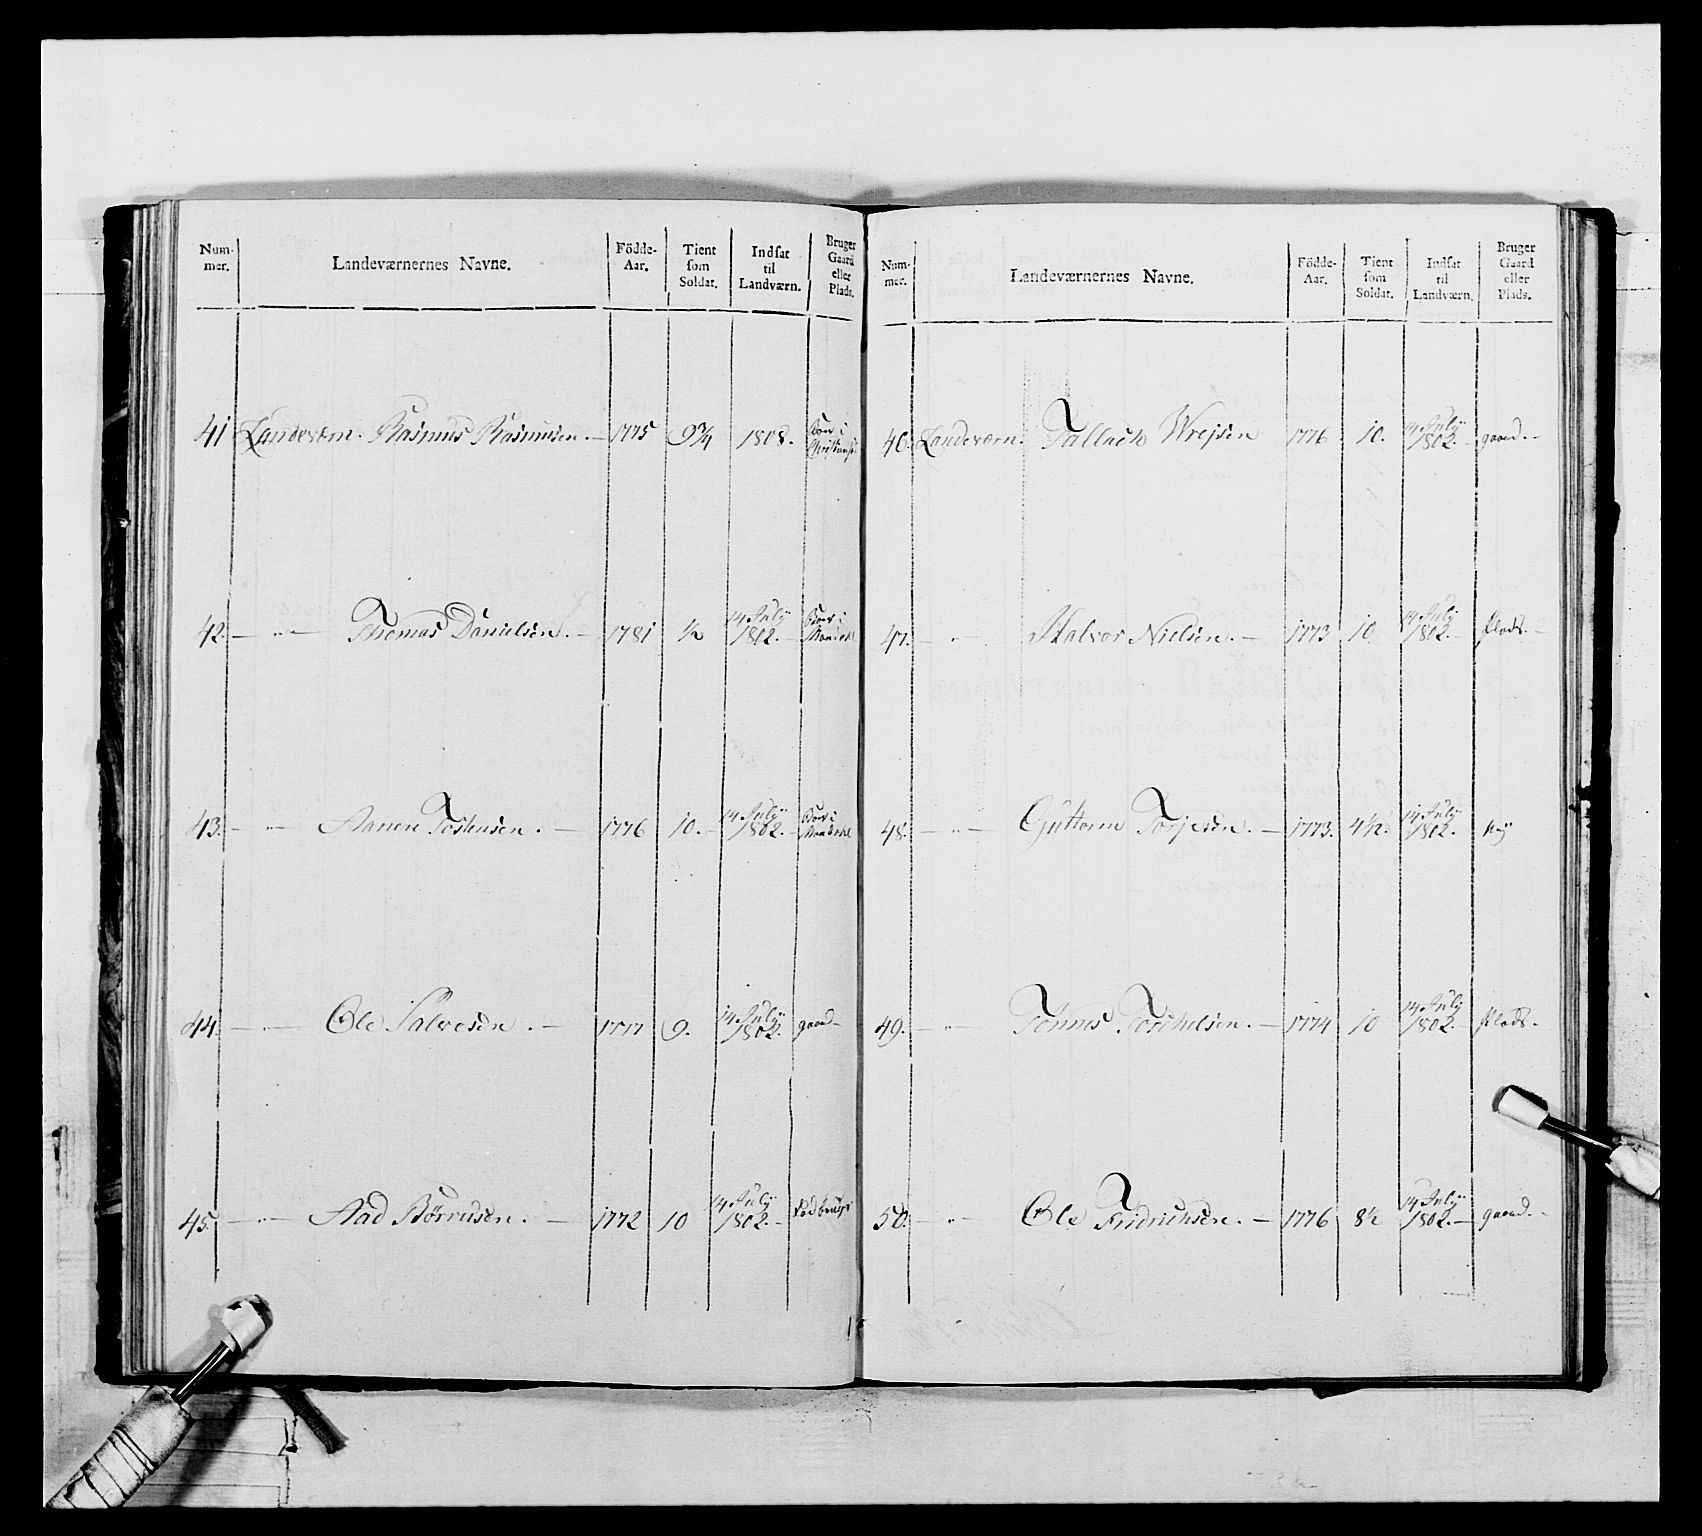 Num-
mer.
Landeværnernes Navne.
Födde-
Aar.
Tient
som
Soldat.
Indsat
til
Landværn.
Bruger
Gaard
eller
Plads.
41 Landeværn. Rasmus Rasmusen. — 1775 9¾ 1808. Boer i
42. — " — Thomas Danielsen. — 1781 ½ 14 July 1802. — Boer i Mandahl
43. — " — Aanen Tostensen. — 1776 10. — 14 July 1802. — Boer i Mandahl
44. — " — Ole Salvesen. — 1777 9. 14 July 1802. — gaard —
45. — " — Aad Börrusen. — 1772 10 14 July 1802. —
Num-
mer.
Landeværnernes Navne.
Födde-
Aar.
Tient
som
Soldat.
Indsat
til
Landværn.
Bruger
Gaard
eller
Plads.
46. Landeværn. Tallach Wrejsen 1776 10. 14 July 1802. — gaard. —
47. — " — Halvor Nielsen. — 1773 10 14 July 1802. — Plads. —
48. — " — Guttorm Torjesen. — 1773. 4½. 14 July 1802. — Ney
49. — " — Tönnes Torkelsen. — 1774 10 14 July 1802. — Plads.
50. — " — Ole Fridrichsen. — 1776 8½ 14 July 1802. — gaard. —